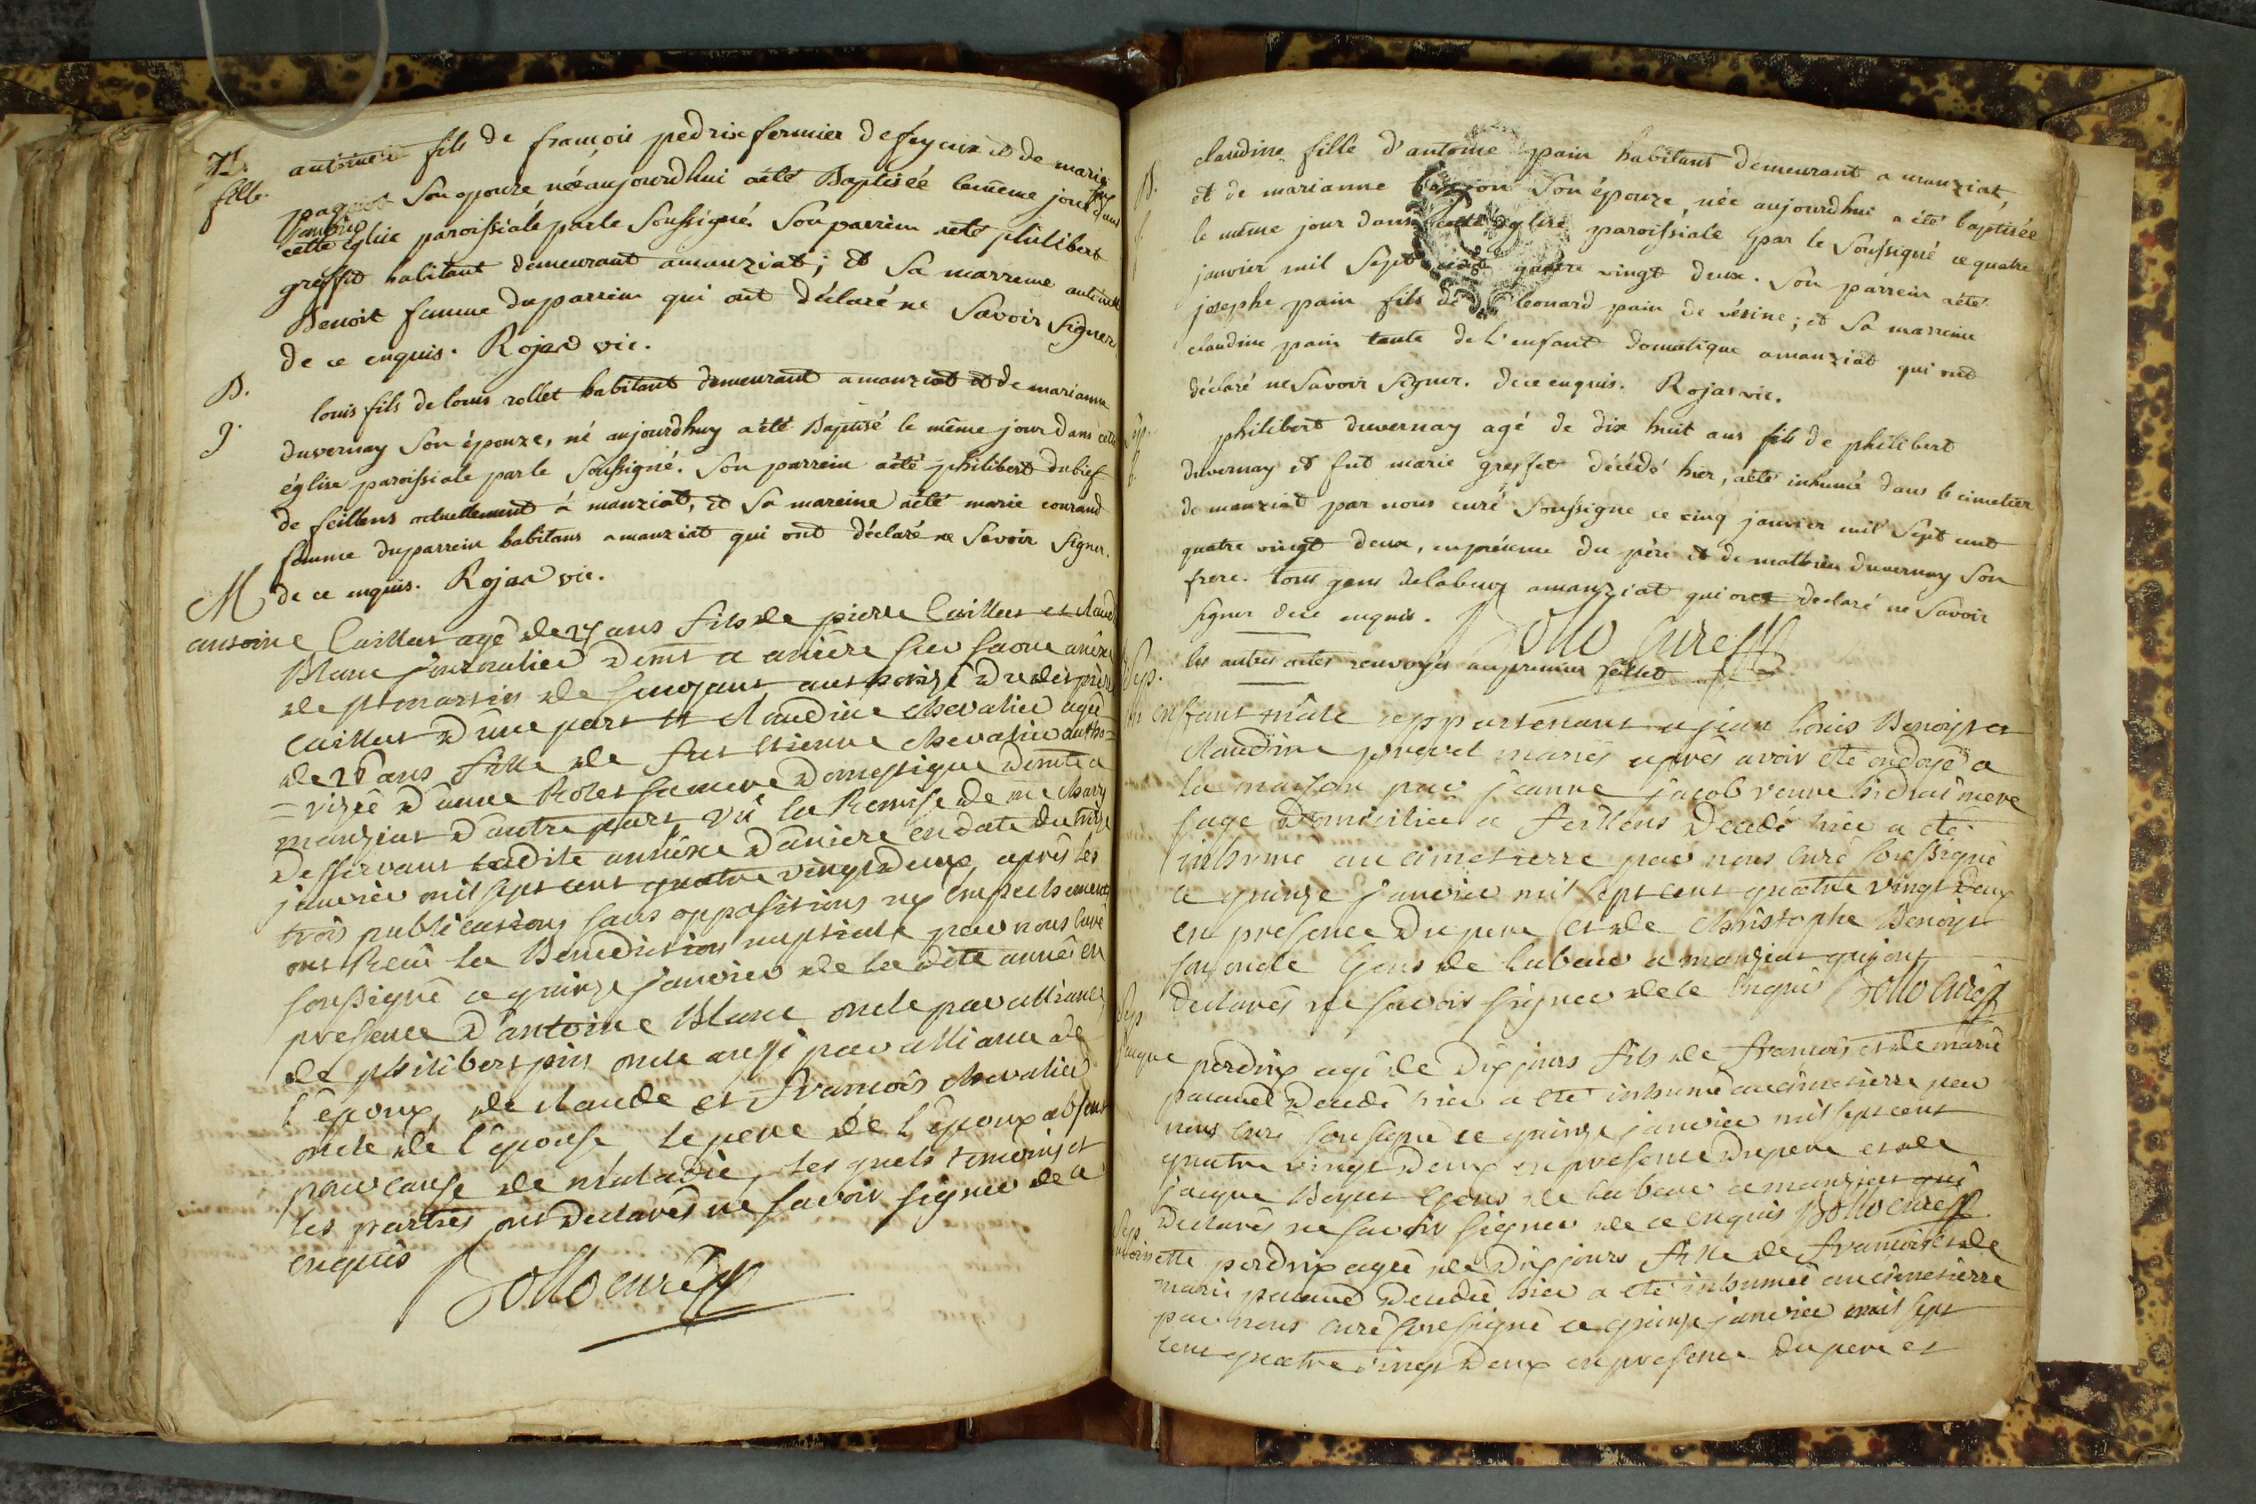 B. antoinete fils de françois pedrix fermier de feycur et de marie
fille. son epouze née aujourdhui a été Baptisée le même jour dans
cette église paroissiale par le soussigné. son parrein a été philibert
greffet habitant demeurant a manziat; et sa marreine antoinette
Benoit femme du parrein qui ont déclaré ne savoir signer
de ce enquis. Rojad vic.
B. louis fils de louis rollet habitant demeurant a manziat et de marianne
g. duvernay son épouze, né aujourdhuy a été Baptisé le même jour dans cette
église paroissiale par le soussigné. son parrein a été philibert dubief
de feillens actuellement à manziat, et sa mareine a été marie courand
femme du parrein habitans a manziat qui ont déclaré ne savoir signer.
de ce enquis. Rojad vic.
M
antoine Caillat agé de 27 ans fils de pierre Caillat et claud
Blanc journalier demt a aniere sur saone anexe
de st martin de authorizé dudit père
Caillat d'une part et claudine chevalier agée
de 28 ans fille de fut etienne chevalier autho=
=rizée d'anne Rolet sa mere Domestique demte a
manziat d'autre part vû la Remise de me
Desservant ladite annexe d'aniere en date du treize
janvier mil sept cent quatre vingt deux après les
trois publications sans oppositions ny empechements
ont Reçu la Benediction nuptiale par nous curé
soussigné ce quinze janvier de la dite année en
presence d'antoine Blanc oncle par alliance
de philibert pin oncle aussi par alliance de
l'époux, de claude et francois chevalier
oncle de l'épouse le pere de l'époux absent
pour cause de maladie, les quels temoins et
les parties ont declarés ne savoir signer de ce
enquis curé
B. claudine fille d'antoine pain habitant demeurant a manziat,
f. et de marianne son épouze, née aujourdhui a été baptisée
le même jour dans cette église paroissiale par le soussigné ce quatre
janvier mil sept cent quatre vingt deux. son parrein a été
josephe pain fils de leonard pain de vésine; et sa marreine
claudine pain tante de l'enfant domestique a manziat qui ont
déclaré ne savoir signer. de ce enquis. Rojat vic.
Sep. philibert duvernay agé de dix huit ans fils de philibert
duvernay et fut marie greffet décédé hier, a été inhumé dans le cimetier
de manziat par nous curé soussigné ce cinq janvier mil sept cent
quatre vingt deux, en présence du père et de mathieu duvernay son
frere. tous gens de labeur a manziat qui ont declaré ne savoir
signer de ce enquis. curé
les autres actes renvoyés au premier feillet
Sep.
un enfant mâle appartenant a jean louis Benoist et
claudine mariés après avoir été ondoyé a
la maison par jeanne jacob veuve mere
sage domiciliée a feillens Decedé hier a été
inhumé au cimetierre par nous curé soussigné
ce quinze janvier mil sept cent quatre vingt deux
en presence du pere et de christophe Benoist
son oncle Gens de labeur a manziat qui ont
declarés ne savoir signer de ce enquis curé
Sep
jaque perdrix agé de dix jours fils de francois et de marie
Decedé hier a été inhumé au cimetierre par
nous curé soussigné ce quinze janvier mil sept cent
quatre vingt deux en presence du pere et de
jacque Gens de labeur a manziat qui
declarés ne savoir signer de ce enquis curé
Sep
antoinette perdrix agée de dix jours fille de francois et de
marie Decedée hier a été inhumée au cimetierre
par nous curé soussigné ce quinze janvier mil sept
cent quatre vingt deux en presence du pere et